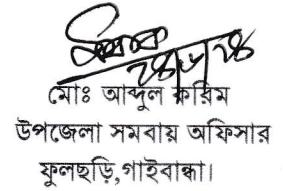 মোঃ আব্দুল করিম
উপজেলা সমবায় অফিসার
ফুলছড়ি,গাইবান্ধা।